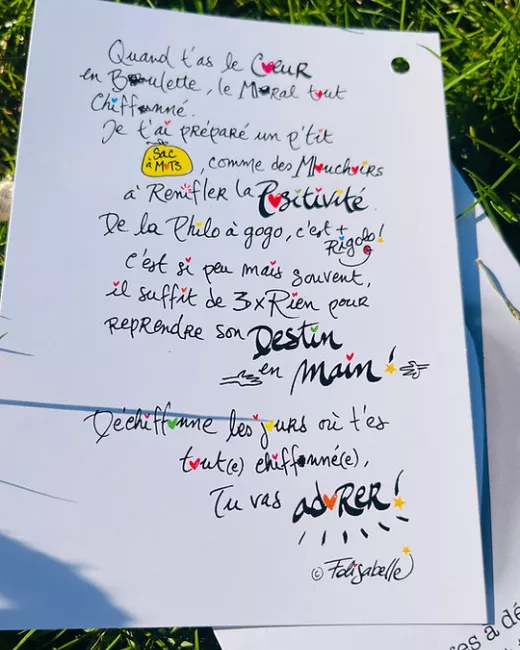 Quand t'as le Cœur
en Boulette, le Moral tout
Chiffonné.
Je t'ai préparé un p'tit
Sac
à MoTS
, comme des Mouchoirs
à Renifler la Positivité.
De la Philo à gogo, c'est +
Rigolo!
C'est si peu mais souvent,
il suffit de 3xRien pour
reprendre son Destin
en Main!
Déchiffonne les jours où t'es
tout(e) chiffonné(e),
Tu vas adorer!
© Folisabelle
es a dé